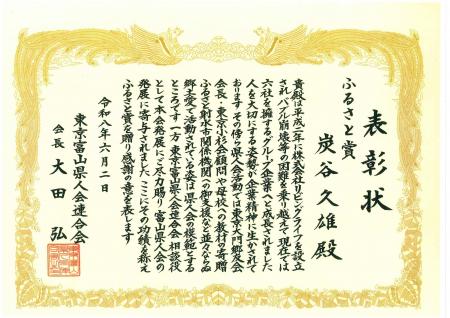 表彰状
ふるさと賞
炭谷久雄殿
貴殿は平成二年に株式会社リビングライフを設立
されバブル崩壊等の困難を乗り越えて現在では
六社を擁するグループ企業へと成長されました
人を大切にする姿勢が企業精神に生かされて
おります その傍ら県人会活動では東京大門郷友会
会長・東京小杉会顧問や母校への教材の寄贈
ふるさと射水市関係機関への御支援など並々ならぬ
郷土愛で活動されている姿は県人会の模範とする
ところです 一方 東京富山県人会連合会 相談役
として本会発展にご尽力賜り 富山県人会の
発展に寄与されました ここにその功績を称え
ふるさと賞を贈り感謝の意を表します
令和八年六月二日
東京富山県人会連合会
会長 大田 弘